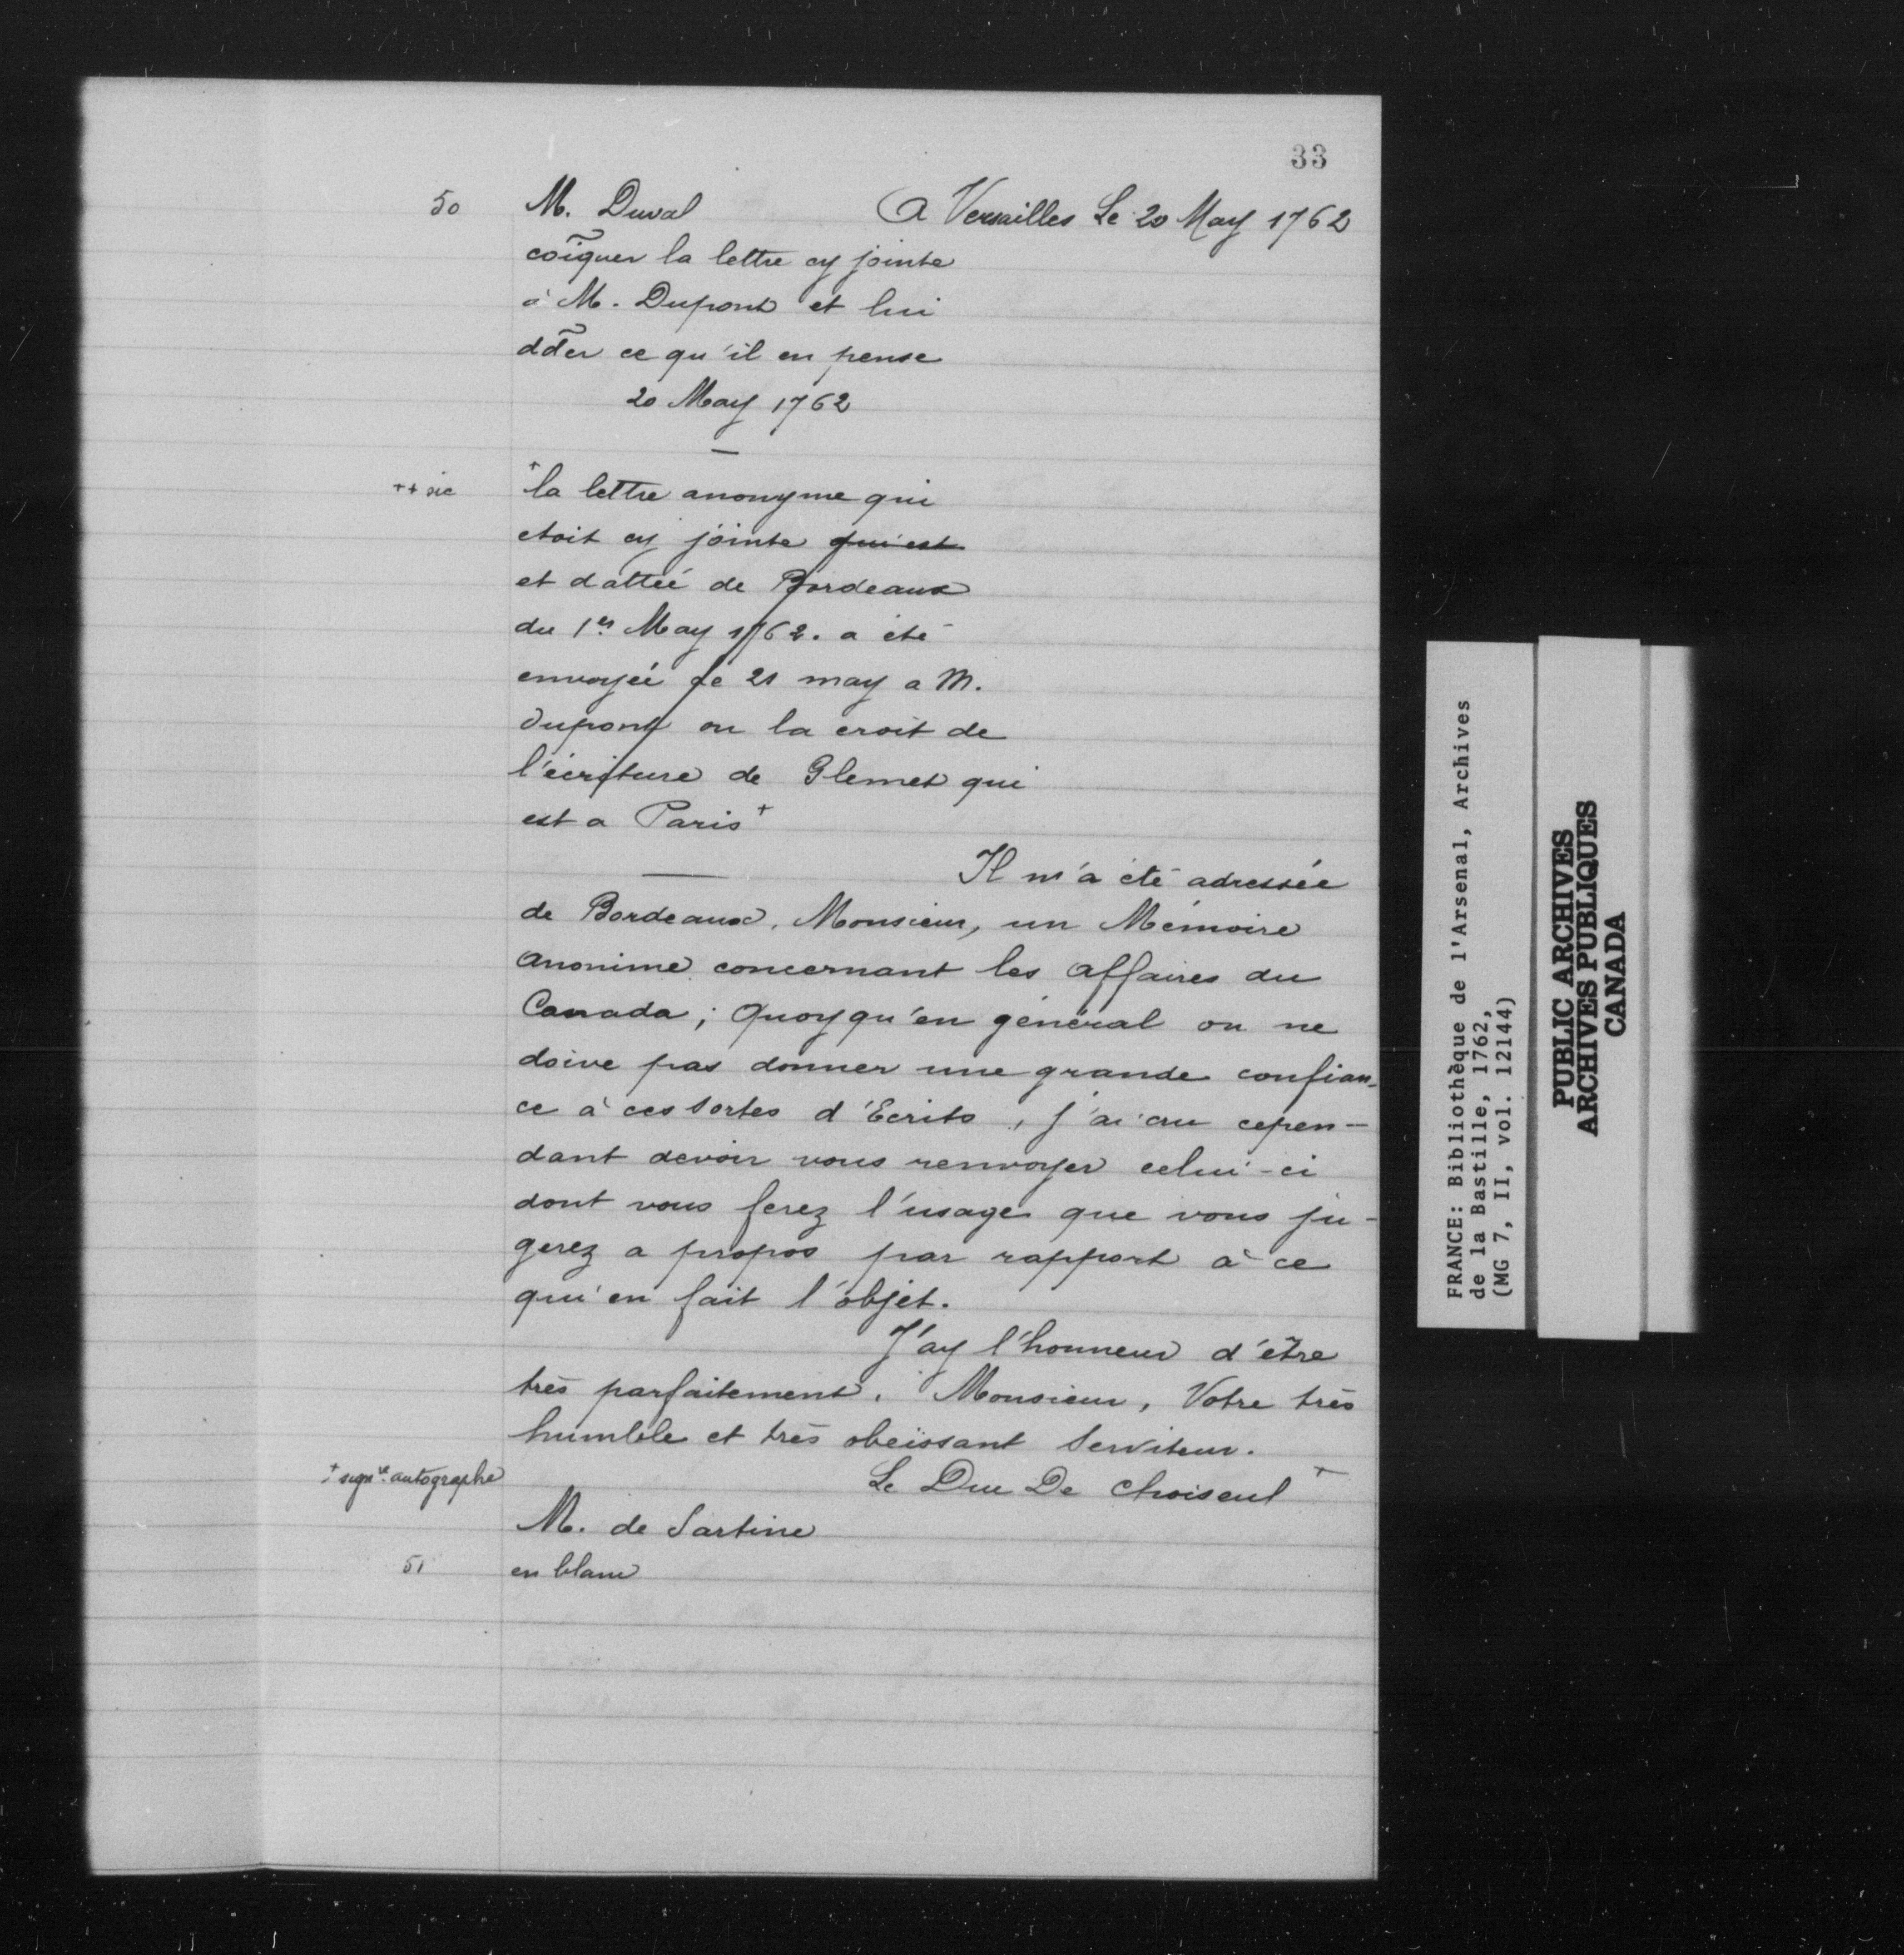 33
50 M. Duval A Versailles Le 20 May 1762
coĩquer la lettre cy jointe
à M. Dupont et lui
dd̃er ce qu'il en pense
20 May 1762
++ sic +la lettre anonyme qui
etoit cy jointe qui est
et dattéé de Bordeaux
du 1er May 1762. a été
envoyéé le 21 may a M.
dupont on la croit de
l'écriture de Glemet qui
est a Paris+
Il m'a été adressée
de Bordeaux, Monsieur, un Mémoire
anonime concernant les affaires du
Canada; Quoyqu'en général on ne
doive pas donner une grande confian-
ce à ces sortes d'Ecrits, j'ai cru cepen-
dant devoir vous renvoyer celui-ci
dont vous ferez l'usage que vous ju-
gerez a propos par rapport à ce
qui en fait l'objet.
J'ay l'honneur d'être
très parfaitement, Monsieur, Votre très
humble et très obeïssant Serviteur.
+ signre autographe Le Duc De Choiseul +
M. de Sartine
51 en blanc
FRANCE: Bibliothèque de l'Arsenal, Archives
de la Bastille, 1762,
(MG 7, II, vol. 12144)
PUBLIC ARCHIVES
ARCHIVES PUBLIQUES
CANADA